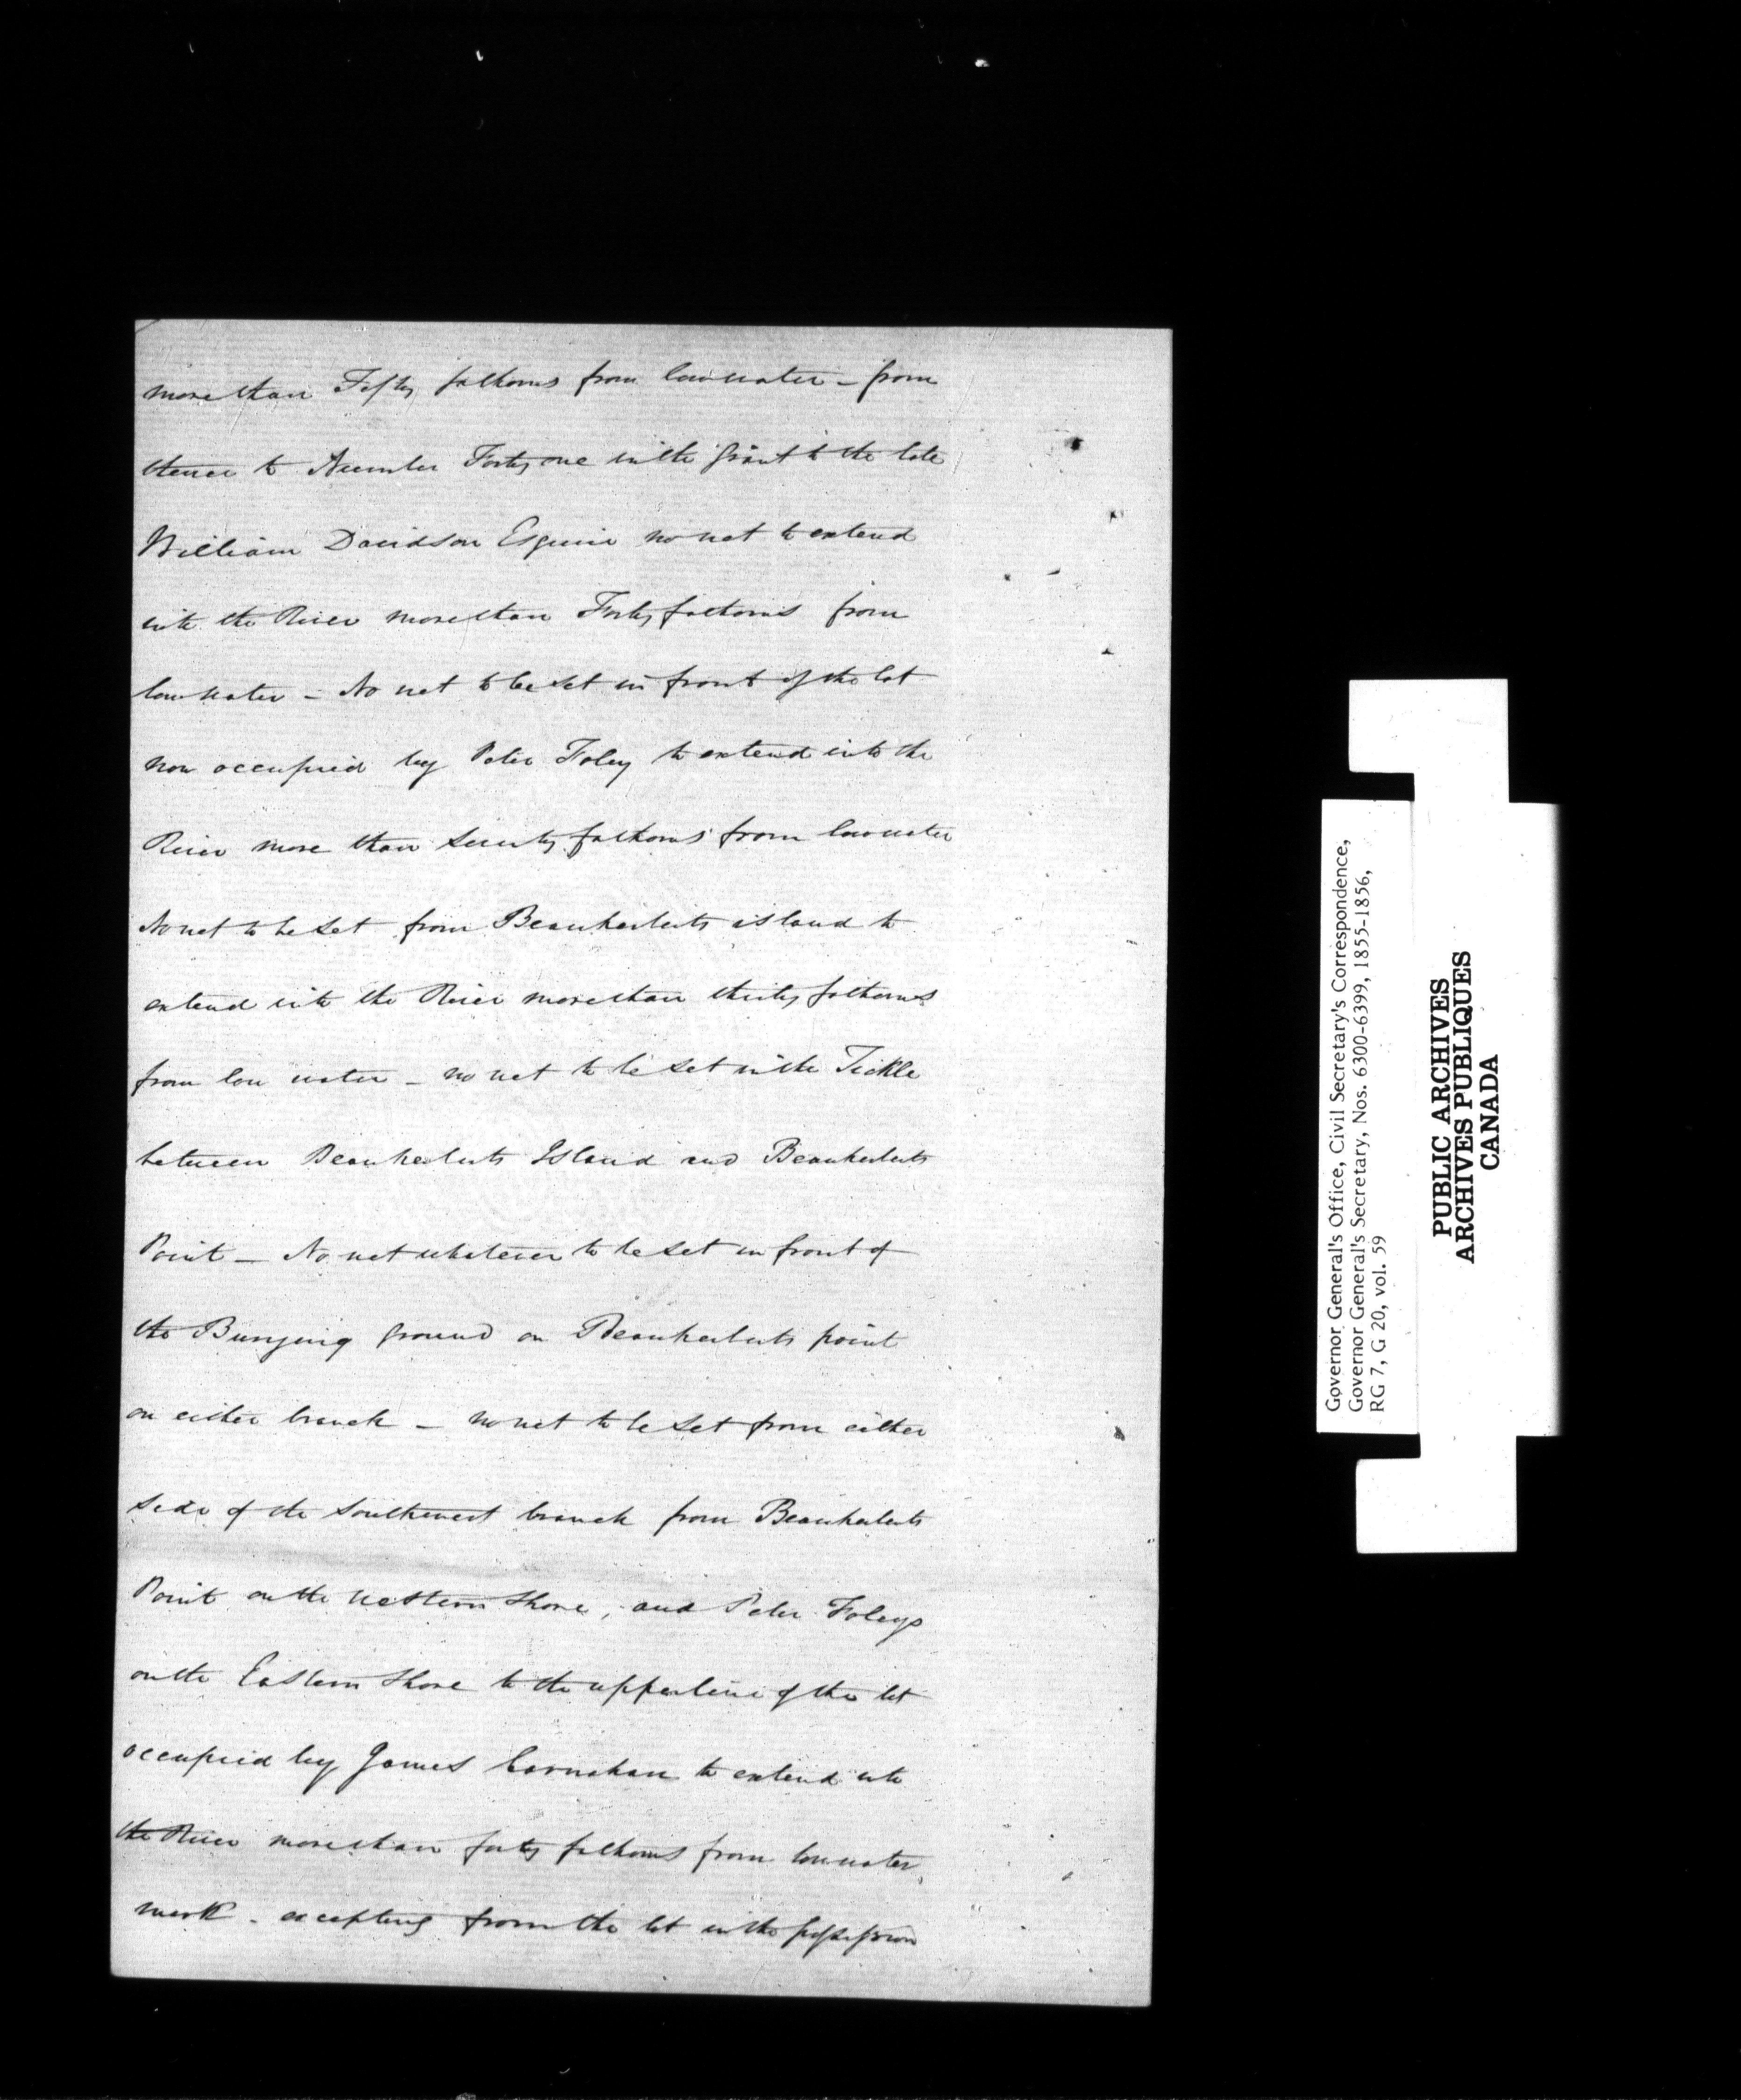 more than Fifty fathoms from low water – from
thence to Number Forty one in the Grant to the late
William Davidson Esquire no net to extend
into the River more than Forty fathoms from
low water – No net to be set in front of the lot
now occupied by Peter Foley to extend into the
River more than seventy fathoms from low water
No net to be set from Beauberlerts island to
extend into the River more than thirty fathoms
from low water – no net to be set in the Tickle
between Beauberlerts Island and Beauberlerts
Point – No net whatever to be set in front of
the Burying ground on Beauberlerts point
on either branch – no net to be set from either
side of the Southwest branch from Beauberlerts
Point on the western shore, and Peter Foleys
on the Eastern Shore to the upper line of the lot
occupied by James Carnahan to extend into
the River more than forty fathoms from low water
mark – excepting from the lot in the possession
Governor General's Office, Civil Secretary's Correspondence,
Governor General's Secretary, Nos. 6300-6399, 1855-1856,
RG 7, G 20, vol. 59
PUBLIC ARCHIVES
ARCHIVES PUBLIQUES
CANADA